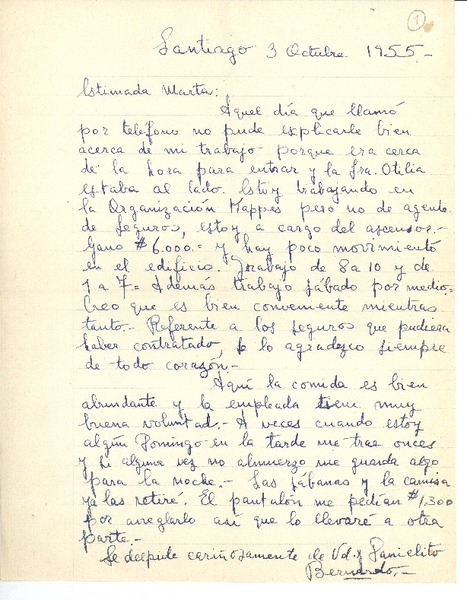 1
Santiago 3 Octubre 1955.-
Estimada Marta:
Aquel día que llamó
por teléfono no pude explicarle bien
acerca de mi trabajo porque era cerca
de la hora para entrar y la Sra. Otilia
estaba al lado. Estoy trabajando en
la Organización Mappes pero no de agente
de seguros, estoy a cargo del ascensor.-
Gano $ 6.000.= y hay poco movimiento
en el edificio. Trabajo de 8 a 10 y de
1 a 7.= Además trabajo sábado por medio.-
Creo que es bien conveniente mientras
tanto.- Referente a los seguros que pudiera
haber contratado, lo agradezco siempre
de todo corazón.-
Aquí la comida es bien
abundante y la empleada tiene muy
buena voluntad.- A veces cuando estoy
algún Domingo en la tarde me trae onces
y si alguna vez no almuerzo me guarda algo
para la noche.- Las sábanas y la camisa
ya las retiré. El pantalón me pedían $1,300
por arreglarlo así que lo llevaré a otra
parte.-
Se despide cariñosamente de Ud. y Danielito
Bernardo.-